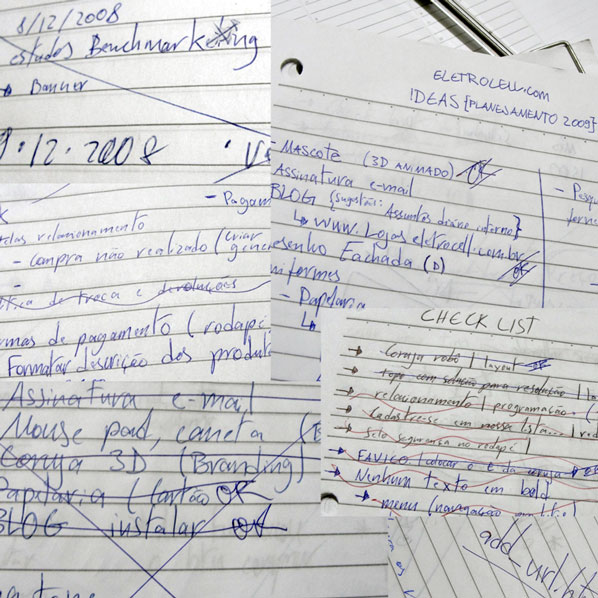 8/12/2008
estudos Benchmarketing
Banner
9.12.2008
- Pagam
relacionamento
- compra não realizado (criar
política de troca e devoluções
formas de pagamento (rodapé
Formatar discrição dos produt
Assinatura e-mail
Mouse pad, caneta (
Coruja 3D (Branding)
Papelaria (cartão OK
BLOG instalar OK
ELETROCELL.com
IDEAS [PLANEJAMENTO 2009]
- MASCOTE (3D ANIMADO) OK
Assinatura e-mail
BLOG {sugestão: Assuntos
www.lojaseletrocell.com.br
Desenho Fachada (D) OK
uniformes
- Papelaria
- Pesqu
CHECK LIST
Coruja robô | layout
topo com solução para resolução |
relacionamento | programação
Cadastre-se em nossa lista...
Selo segurança no rodapé |
FAVICO | colocar o E da coruja
Ninhum texto em bold
menu (navegação
add_url.ht